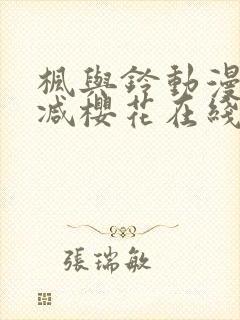 楓與鈴動漫
减櫻花在綫
張瑞敏